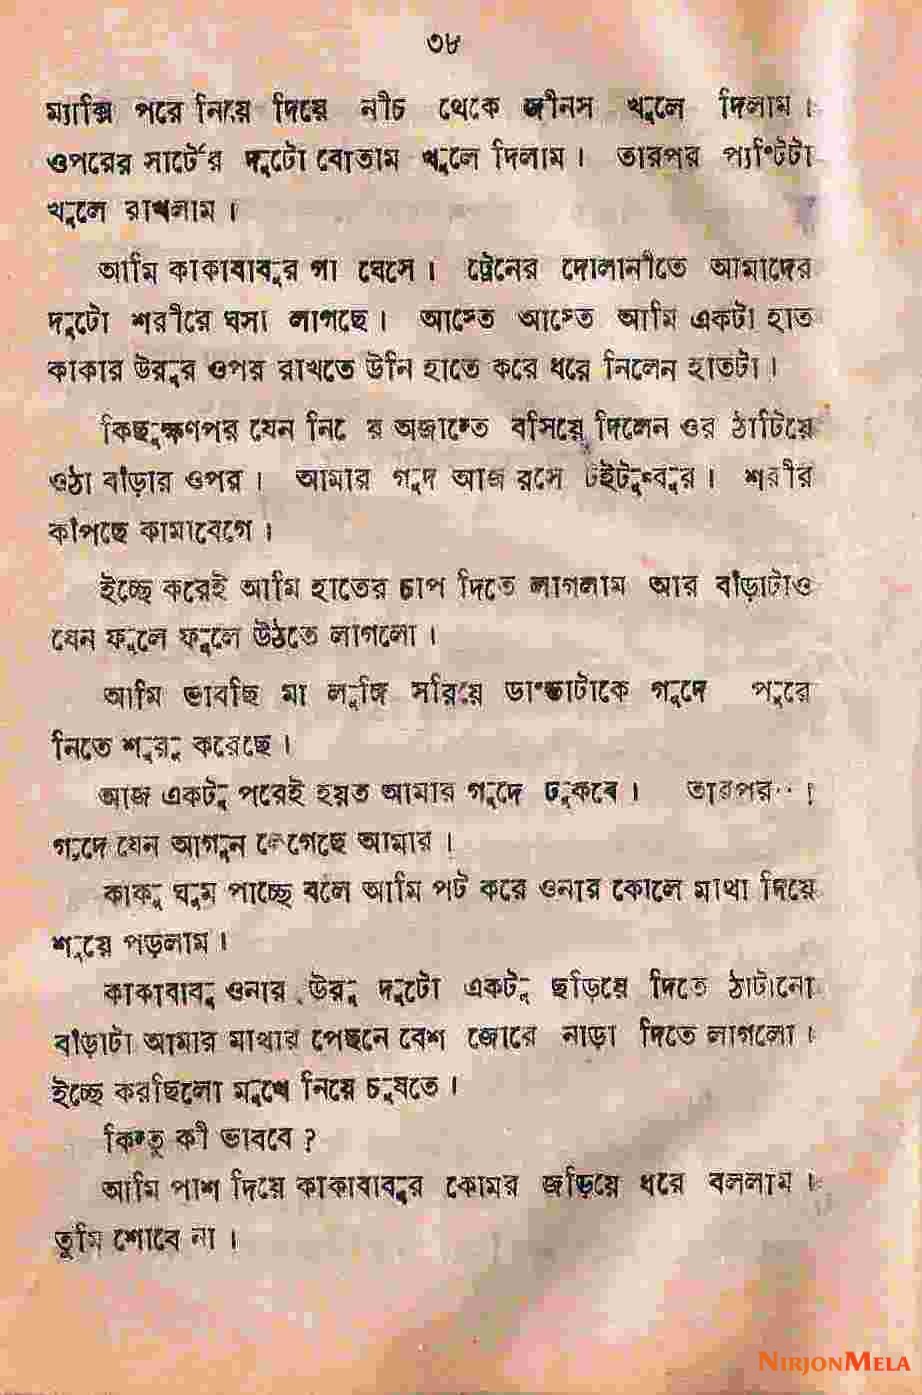 ৩৮
ম্যাক্সি পরে নিয়ে দিয়ে নীচ থেকে জীনস খুলে দিলাম।
ওপরের সার্টের দুটো বোতাম খুলে দিলাম। তারপর প্যান্টিটা
খুলে রাখলাম।
আমি কাকাবাবুর গা ঘেসে। ট্রেনের দোলানীতে আমাদের
দুটো শরীরে ঘসা লাগছে। আস্তে আস্তে আমি একটা হাত
কাকার উরুর ওপর রাখতে উনি হাতে করে ধরে নিলেন হাতটা।
কিছুক্ষণপর যেন নি র অজান্তে বসিয়ে দিলেন ওর ঠাটিয়ে
ওঠা বাঁড়ার ওপর। আমার গুদ আজ রসে টইটুম্বুর। শরীর
কাঁপছে কামাবেগে।
ইচ্ছে করেই আমি হাতের চাপ দিতে লাগলাম আর বাঁড়াটাও
যেন ফুলে ফুলে উঠতে লাগলো।
আমি ভাবছি মা লুঙ্গি সরিয়ে ডান্ডাটাকে গুদে পুরে
নিতে শুরু করেছে।
আজ একটু পরেই হয়ত আমার গুদে ঢুকবে। তারপর··!
গুদে যেন আগুন লেগেছে আমার।
কাকু ঘুম পাচ্ছে বলে আমি পট করে ওনার কোলে মাথা দিয়ে
শুয়ে পড়লাম।
কাকাবাবু ওনার উরু দুটো একটু ছড়িয়ে দিতে ঠাটানো
বাঁড়াটা আমার মাথার পেছনে বেশ জোরে নাড়া দিতে লাগলো।
ইচ্ছে করছিলো মুখে নিয়ে চুষতে।
কিন্তু কী ভাববে?
আমি পাশ দিয়ে কাকাবাবুর কোমর জড়িয়ে ধরে বললাম।
তুমি শোবে না।
NIRJONMELA